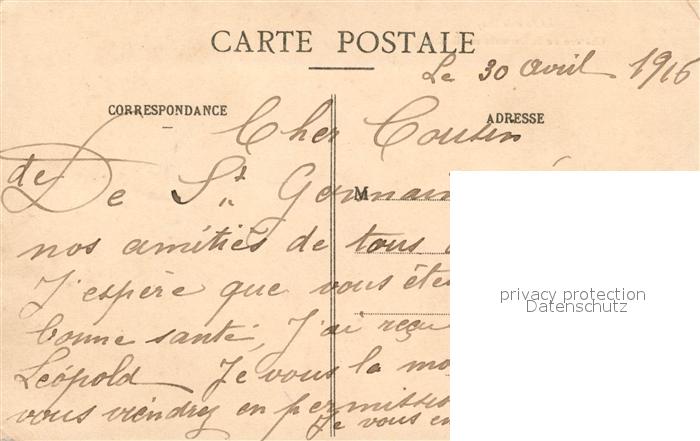 CARTE POSTALE
Le 30 avril 1916
CORRESPONDANCE
ADRESSE
Cher Cousin
de
De St Germain
M
nos amitiés de tous
J'espère que vous ête
bonne santé, J'ai reçu
Léopold Je vous le
vous viendrez en permission
Je vous en
privacy protection
Datenschutz